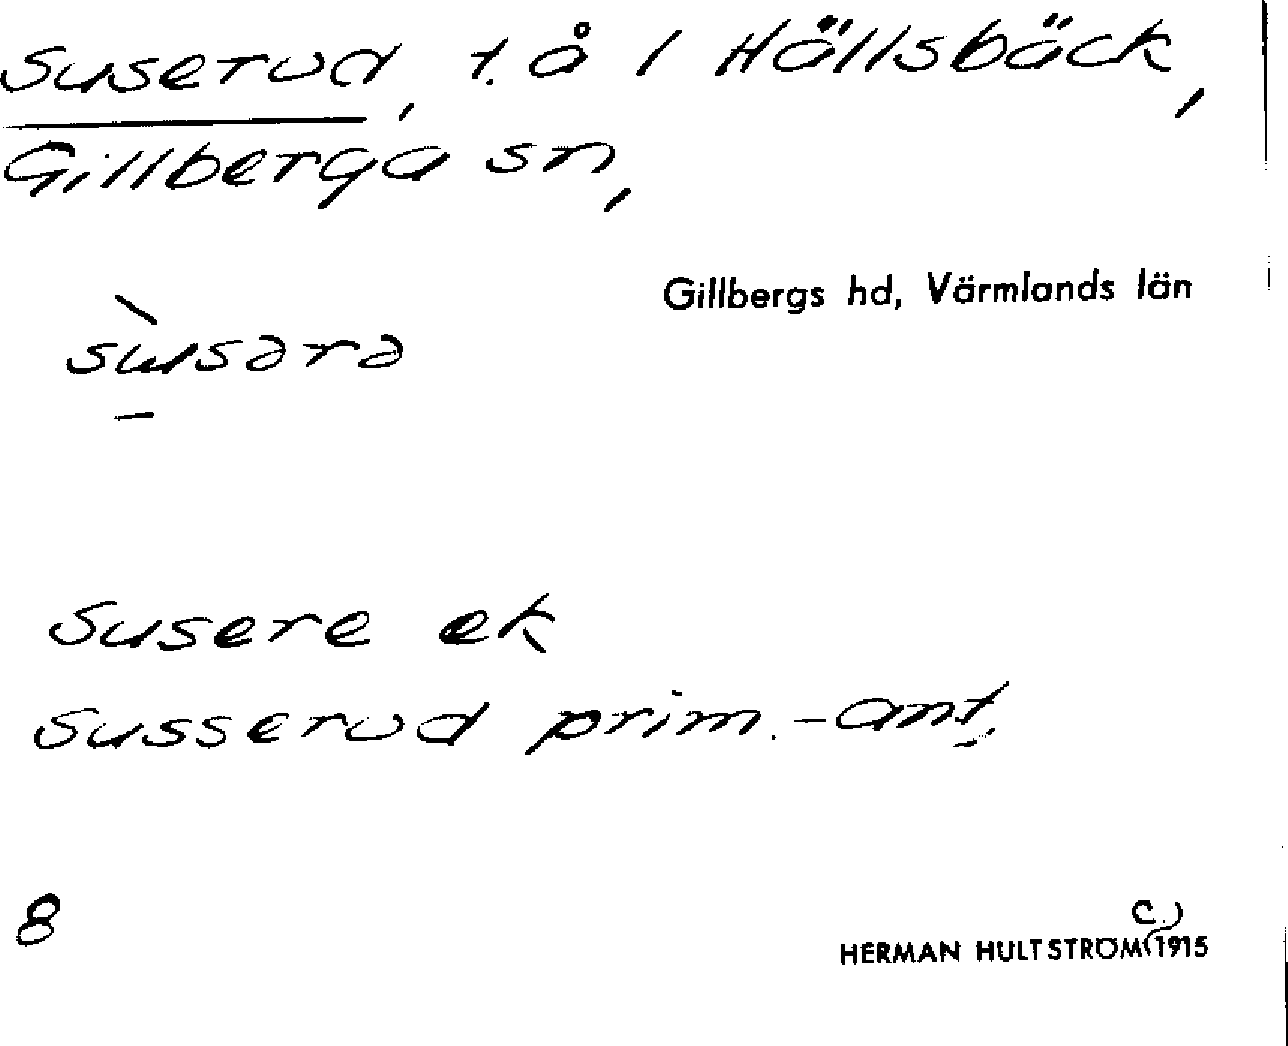 Suserud, t. å 1 Hällsbäck,
Gillberga sn,
Gillbergs hd, Värmlands län
sùsərə
Susere ek
Susserud prim.-ant.
8
HERMAN HULTSTRÖM (C. 1915)